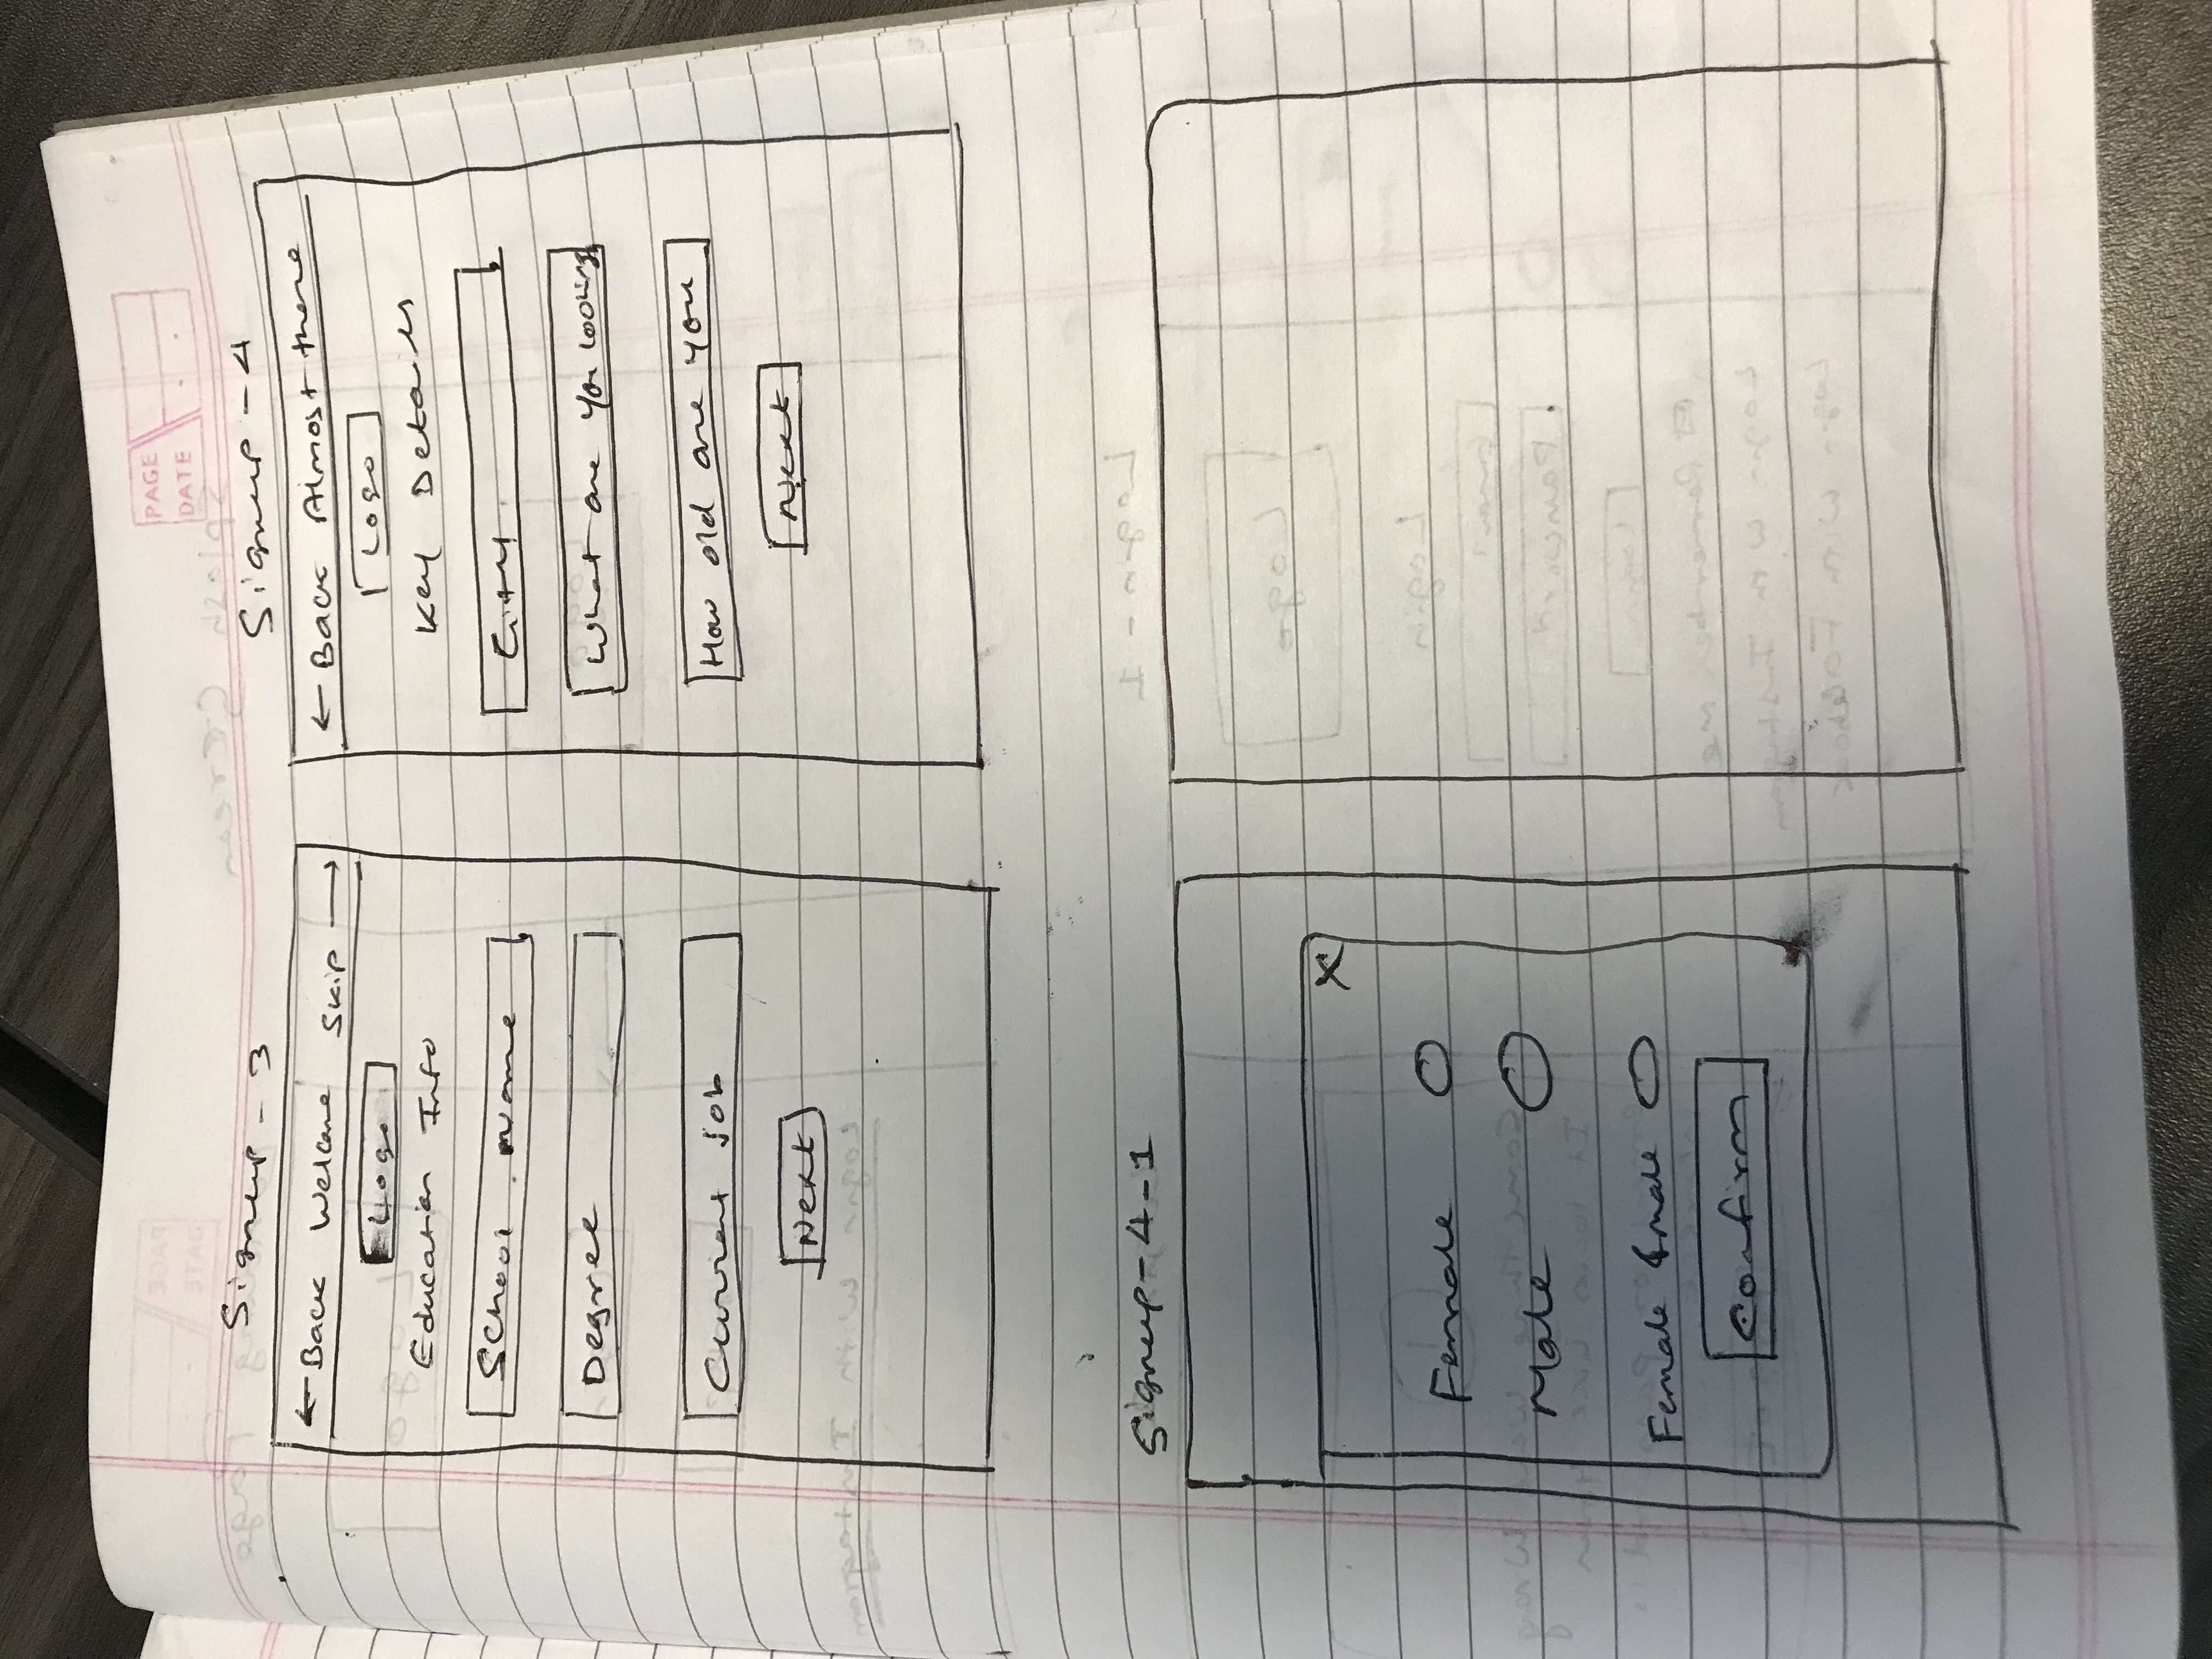 PAGE
DATE
Signup - 3
← Back Welcome Skip →
Logo
Education Info
School Name
Degree
Current job
Next
Signup - 4
← Back Almost there
Logo
Key Details
City
What are you looking
How old are you
Next
Signup-4-1
X
Female
Male
Female & male
Confirm